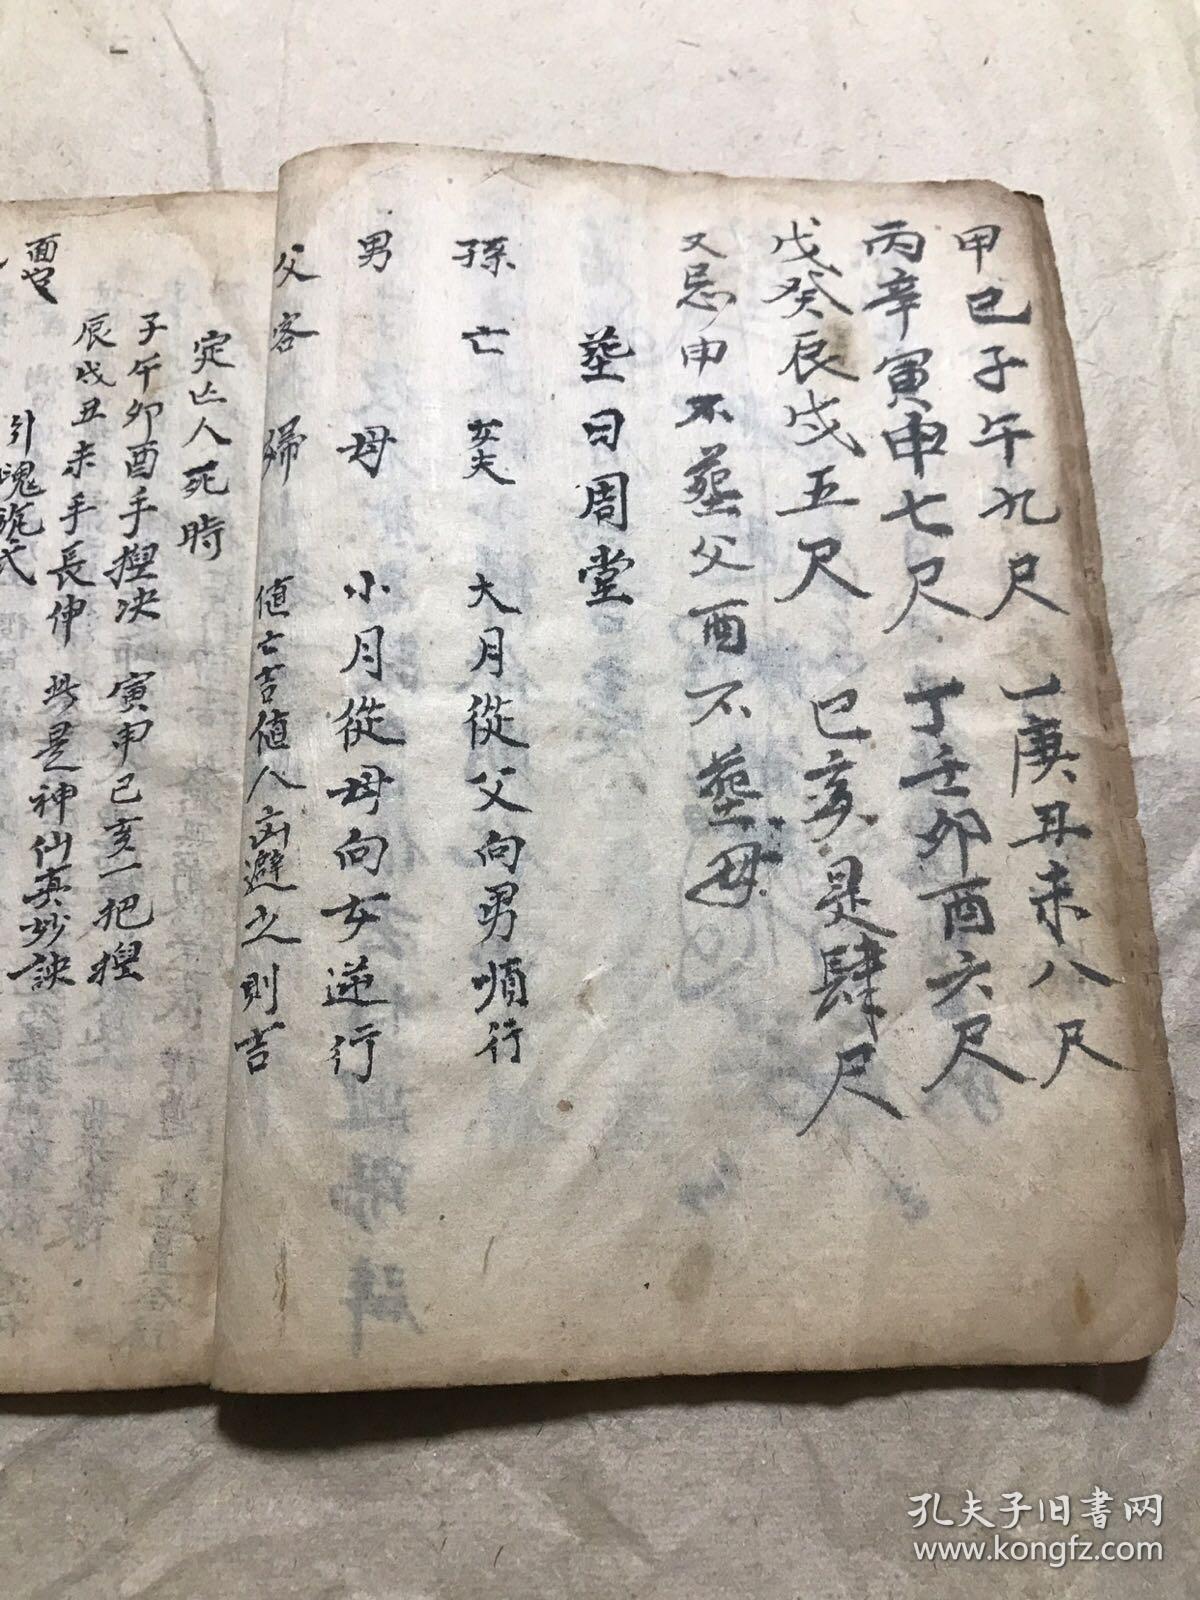 甲己子午九尺　乙庚丑未八尺
丙辛寅申七尺　丁壬卯酉六尺
戊癸辰戌五尺　巳亥是肆尺
又忌申不葬父酉不葬母
葬日周堂
孫　亡　女夫　大月從父向男順行
男　母　小月從母向女逆行
父　客　婦　值亡吉值人凶避之則吉
定亡人死時
子午卯酉手揑决　寅申巳亥一把揑
辰戌丑未手長伸　此是神仙真妙訣
引魂旛式
孔夫子旧书网
www.kongfz.com